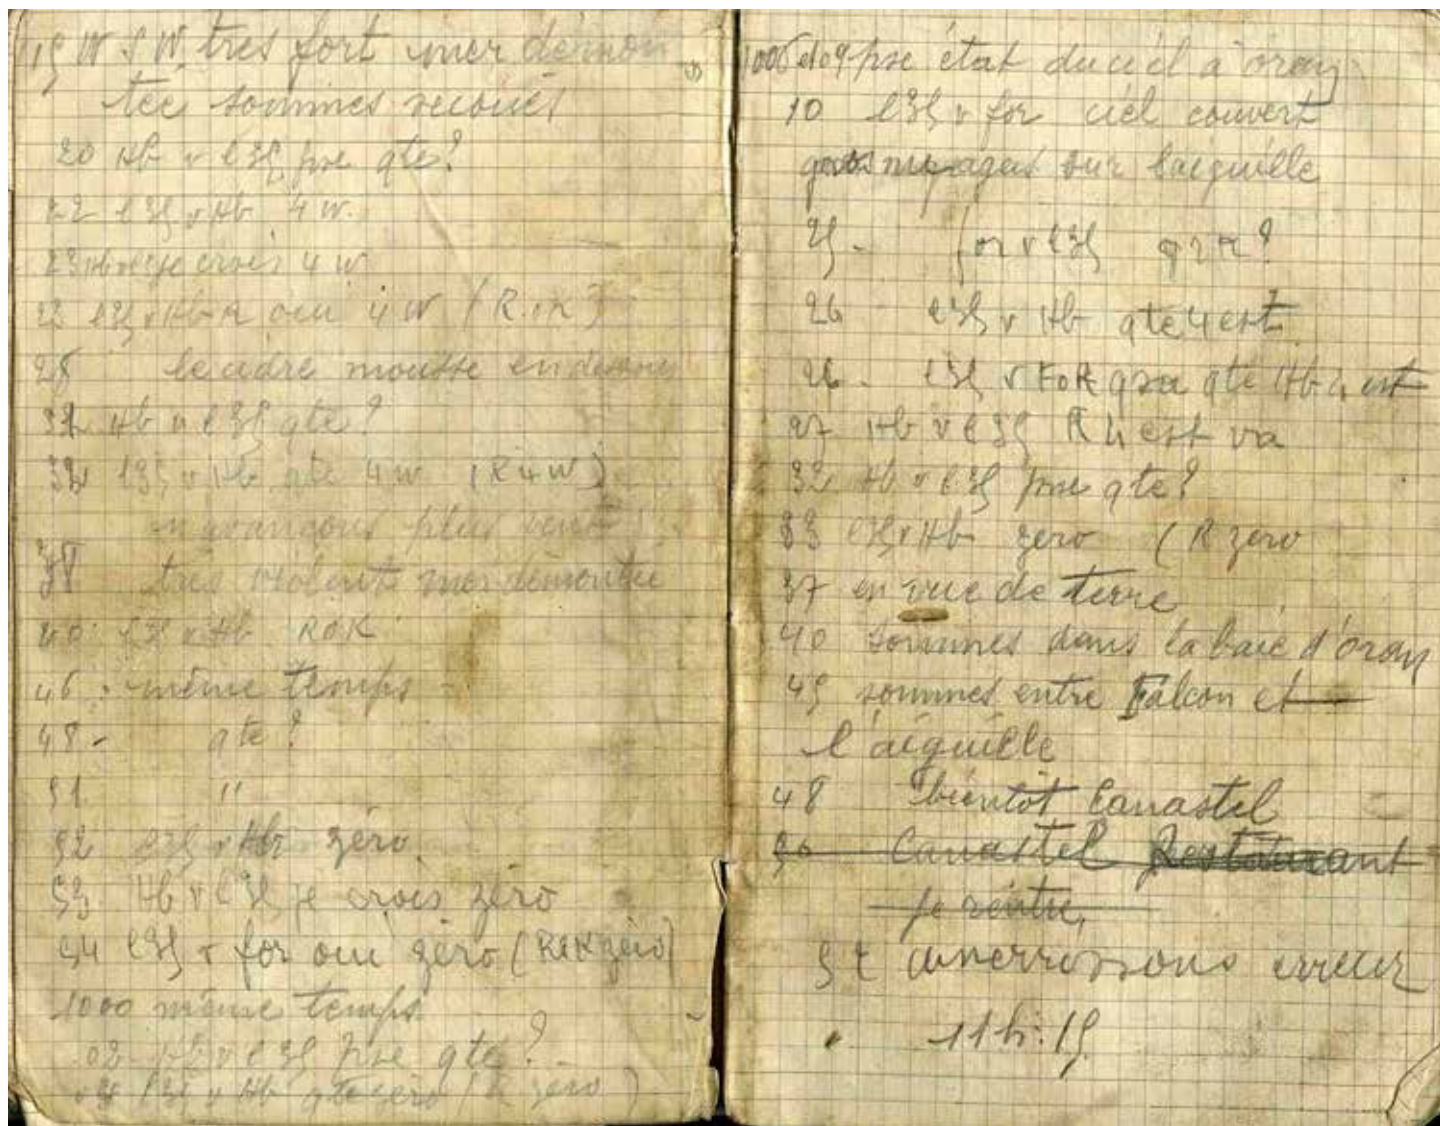 15 W S W. très fort mer démon
tée sommes secoués
20 Hb v l35 pse qte?
22 l35 v Hb 4 W.
23 Hb v l35 je crois 4 W
l35 v Hb R oui 4 W (R.OK)
28 le cadre mousse en
32 Hb v l35 qte?
l35 v Hb qte 4 W (R 4 W)
n'avançons plus vent
38 très violent mer démontée
40 l35 v Hb ROK
46 même temps
48 - qte?
51 "
52 l35 v Hb zéro
53 Hb v l35 je crois zéro
54 l35 v for oui zéro (ROK zéro)
1000 même temps
02 - Hb v l35 pse qte?
l35 v Hb qte zéro (R zéro)
1006 pse état du ciel à oran
10 l35 v for ciel couvert
gros nuages sur l'aiguille
25 - for v l35
26 l35 v Hb qte 4 est
26 - l35 v FOR qte Hb 4 est
27 Hb v l35 R 4 est va
32 Hb v l35 pse qte?
33 l35 v Hb zero (R zero
37 en vue de terre
40 sommes dans la baie d'oran
45 sommes entre Falcon et
l'aiguille
48 bientôt Canastel
50 Canastel Restaurant
je rentre,
52
11 h. 15